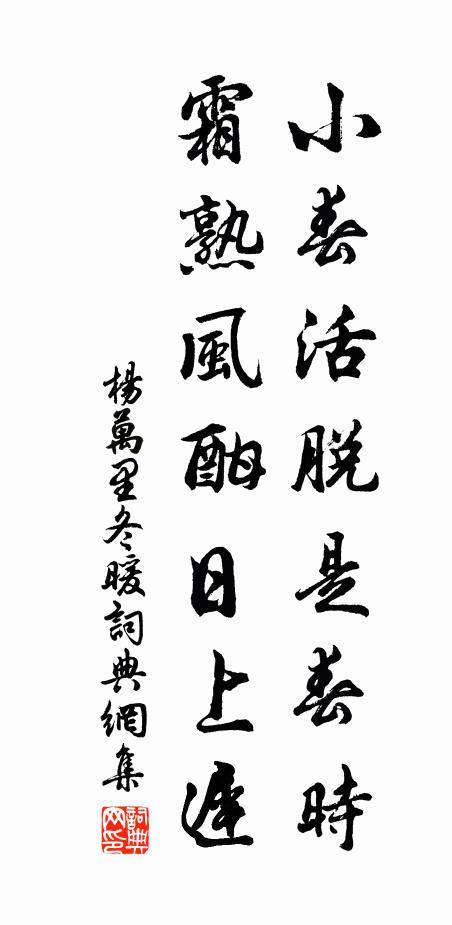 小春活脫是春時
霜熟風酣日上遲
楊萬里冬暖詞典網集
詞典网印